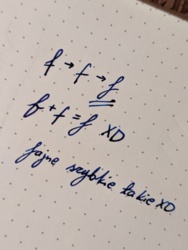 f → f → f
f + f = f XD
fajne szybkie takie XD